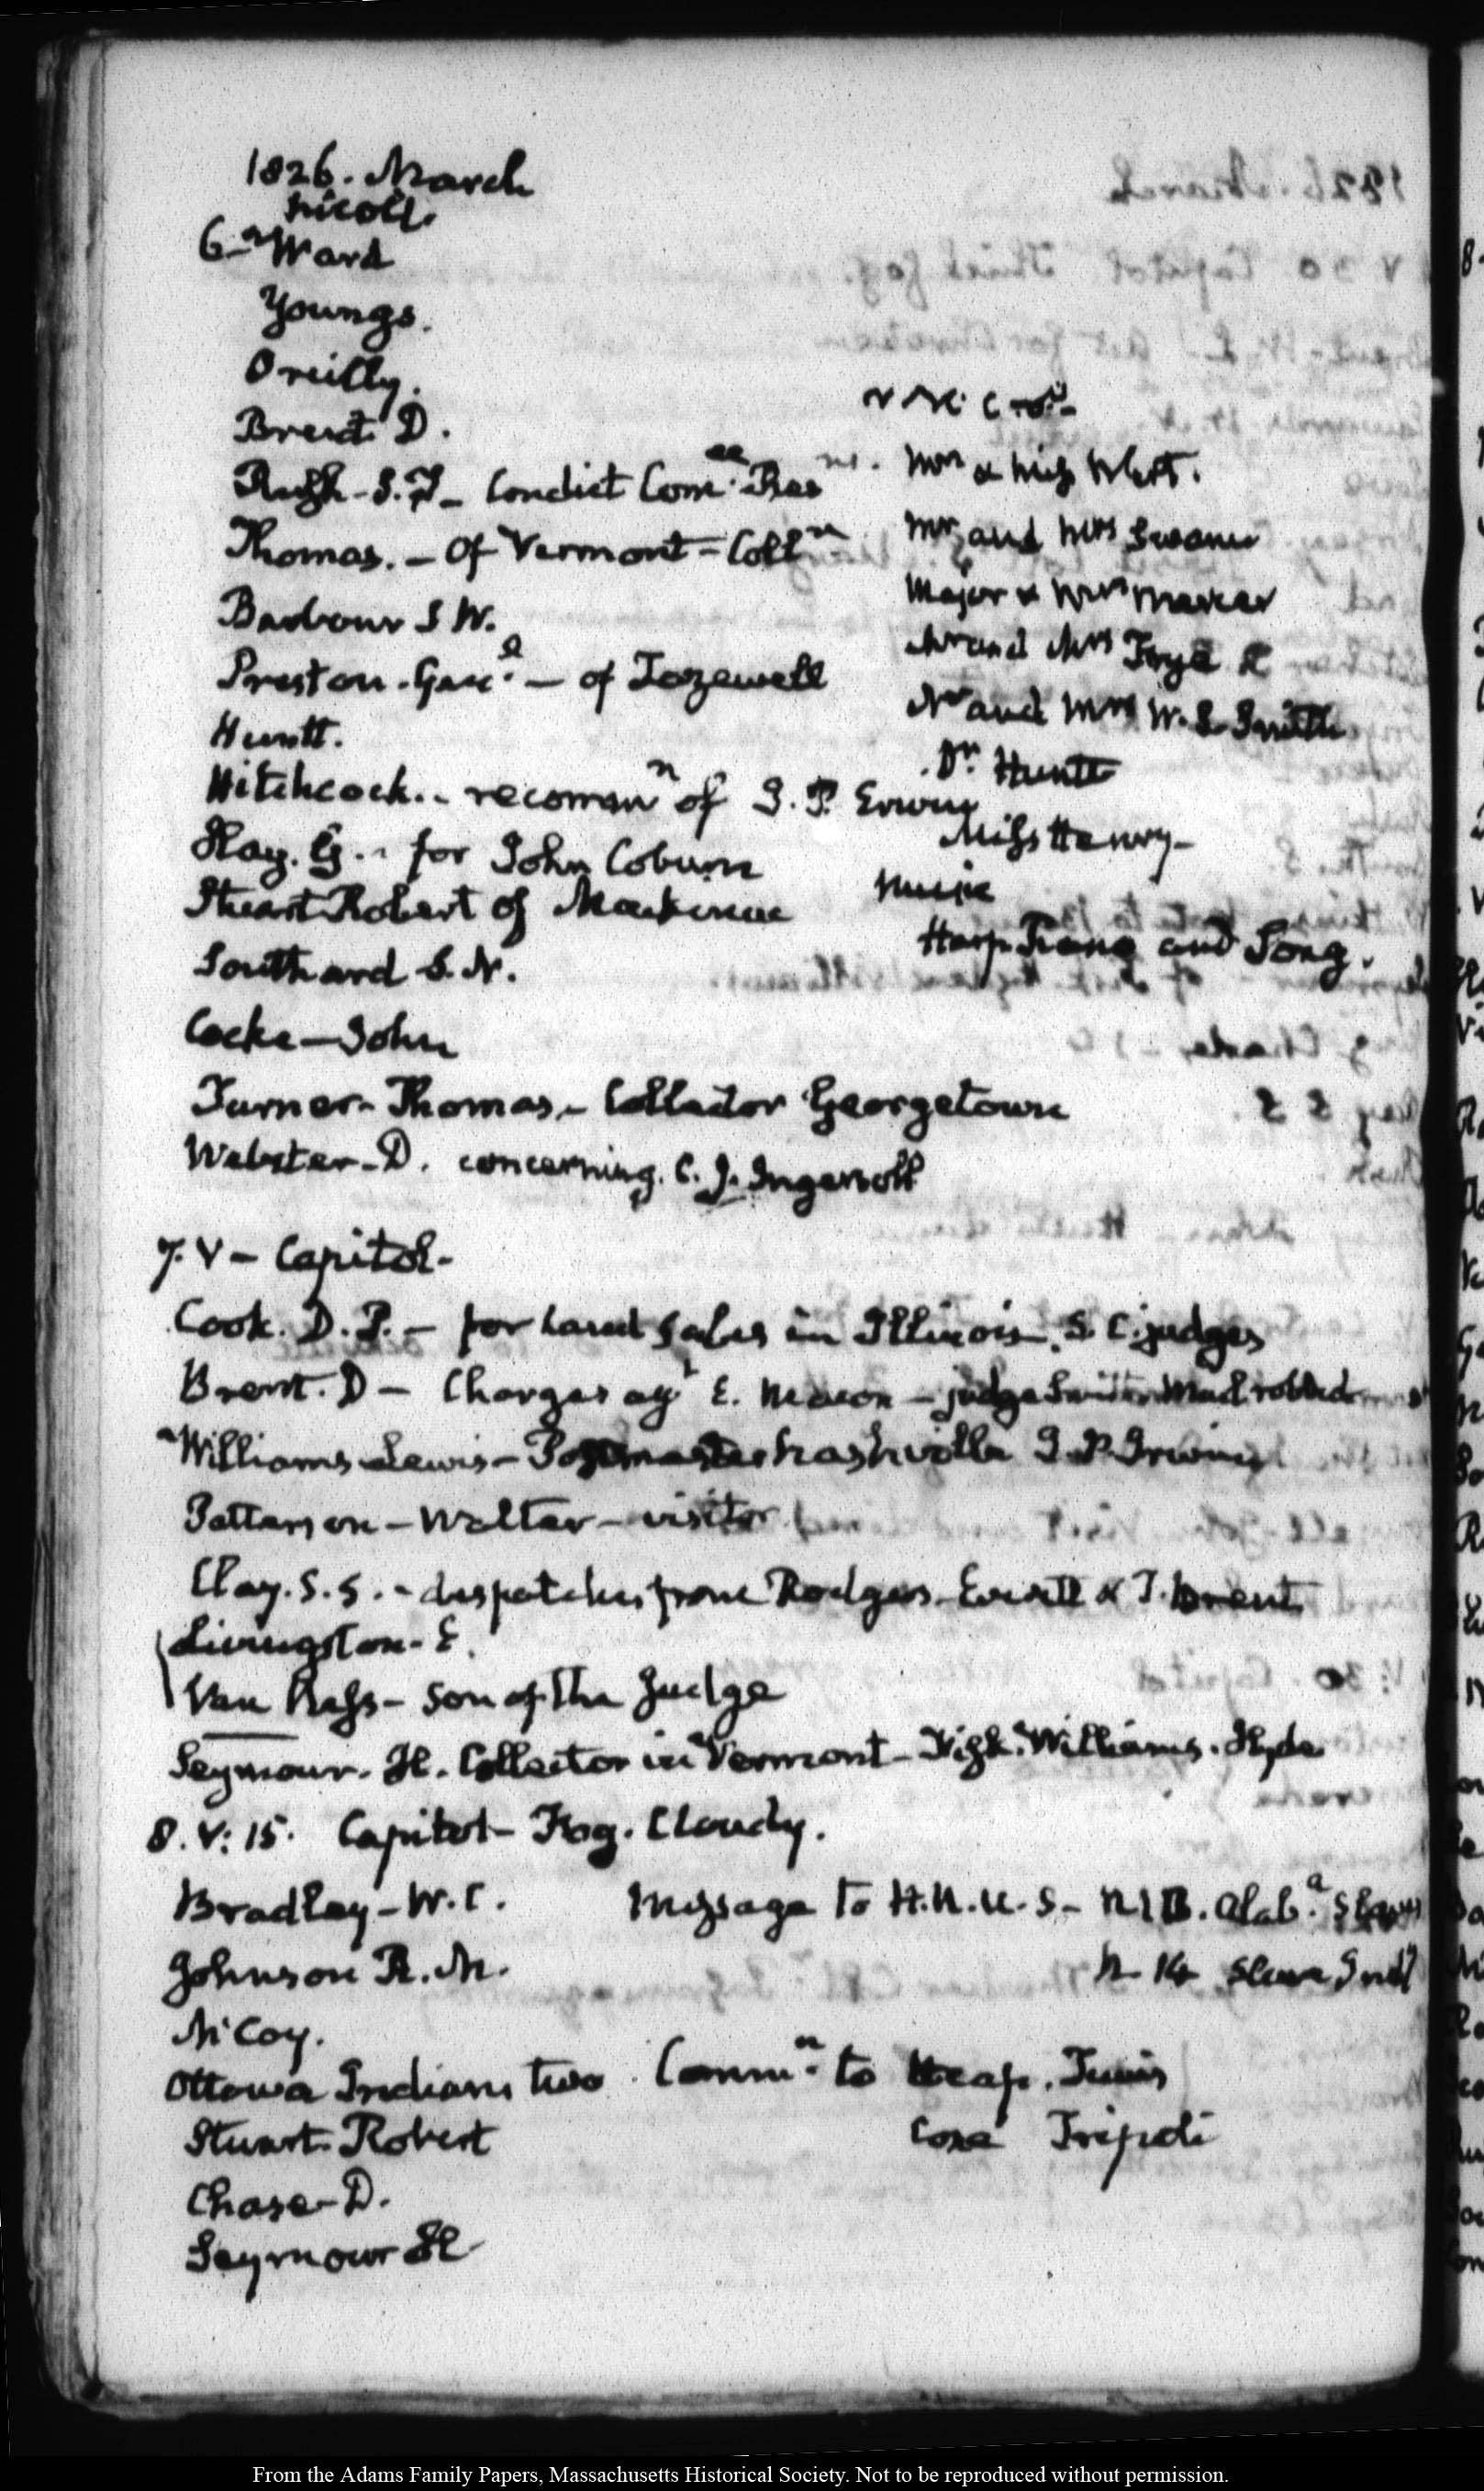 1826. March
Nicoll.
6- Ward
Youngs.
Oreilly.
Brent D.
Rush- S.T- Condict Com.
Thomas. - Of Vermont - Colln
Barbour S W.
Preston. Genl. - of Tazewell
Huntt.
Hitchcock.. recommn of J. P. Erwin
Hay. G.. for John Coburn
Stuart Robert of Mackinac
Southard S. N.
Cocke - John
Turner- Thomas,- Collector Georgetown
Webster-D. concerning. C. J. Ingersoll
Mrs & Miss
Mr and Mrs
Major & Mrs
Mr and Mrs Frye
Mr and Mrs W. S. Smith
Dr. Huntt
Miss Henry-
Music
Harp. Piano and Song.
7. V - Capitol-
Cook. D. P. - for Land Sales in Illinois. S. C. judges
Brent. D - Charges agt E. Mason - judge
Williams Lewis - Postmaster Nashville J. P. Irwin
Patterson - Walter - visitor
Clay. S. S. - despatches from Rodgers. Everett & T. Brent
Livingston- E.
Van Ness - Son of the Judge
Seymour. H. Collector in Vermont - Williams. Hyde
8. V: 15. Capitol - Fog. Cloudy.
Bradley - W. C. Message to H. R. U. S -
Johnson R. M.
McCoy.
Ottowa Indians two. Commn. to Heap. Tunis
Stuart. Robert Coxe Tripoli
Chase - D.
Seymour H
From the Adams Family Papers, Massachusetts Historical Society. Not to be reproduced without permission.